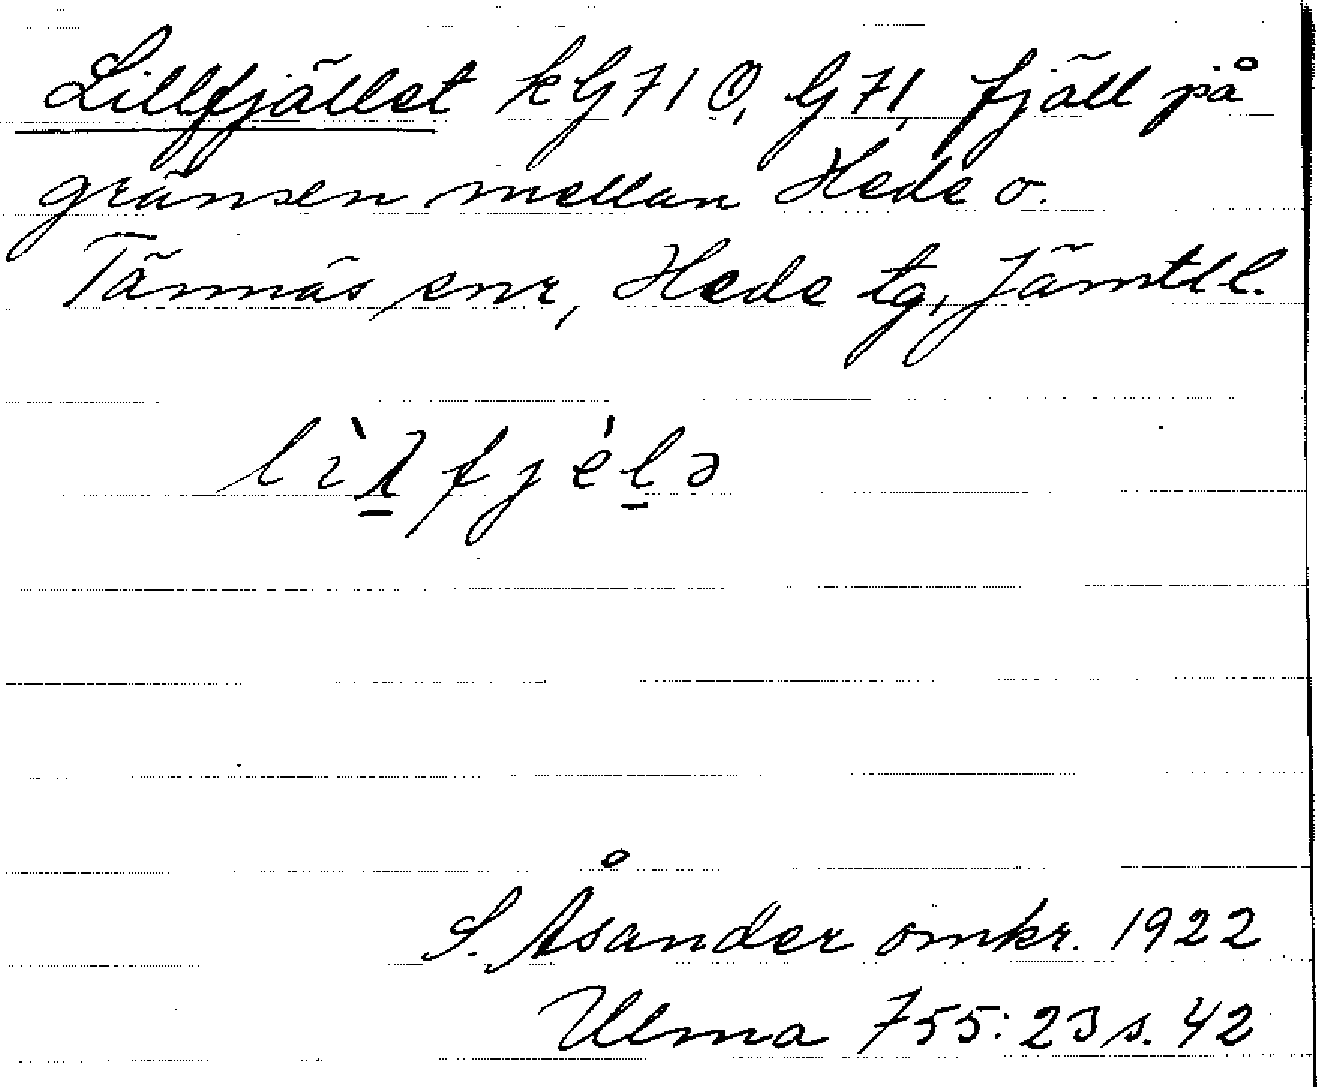 Lillfjället kG71Ö, G71, fjäll på
gränsen mellan Hede o.
Tännäs snr, Hede tg, Jämtl l.
S. Åsander omkr. 1922
Ulma 755:23 s. 42